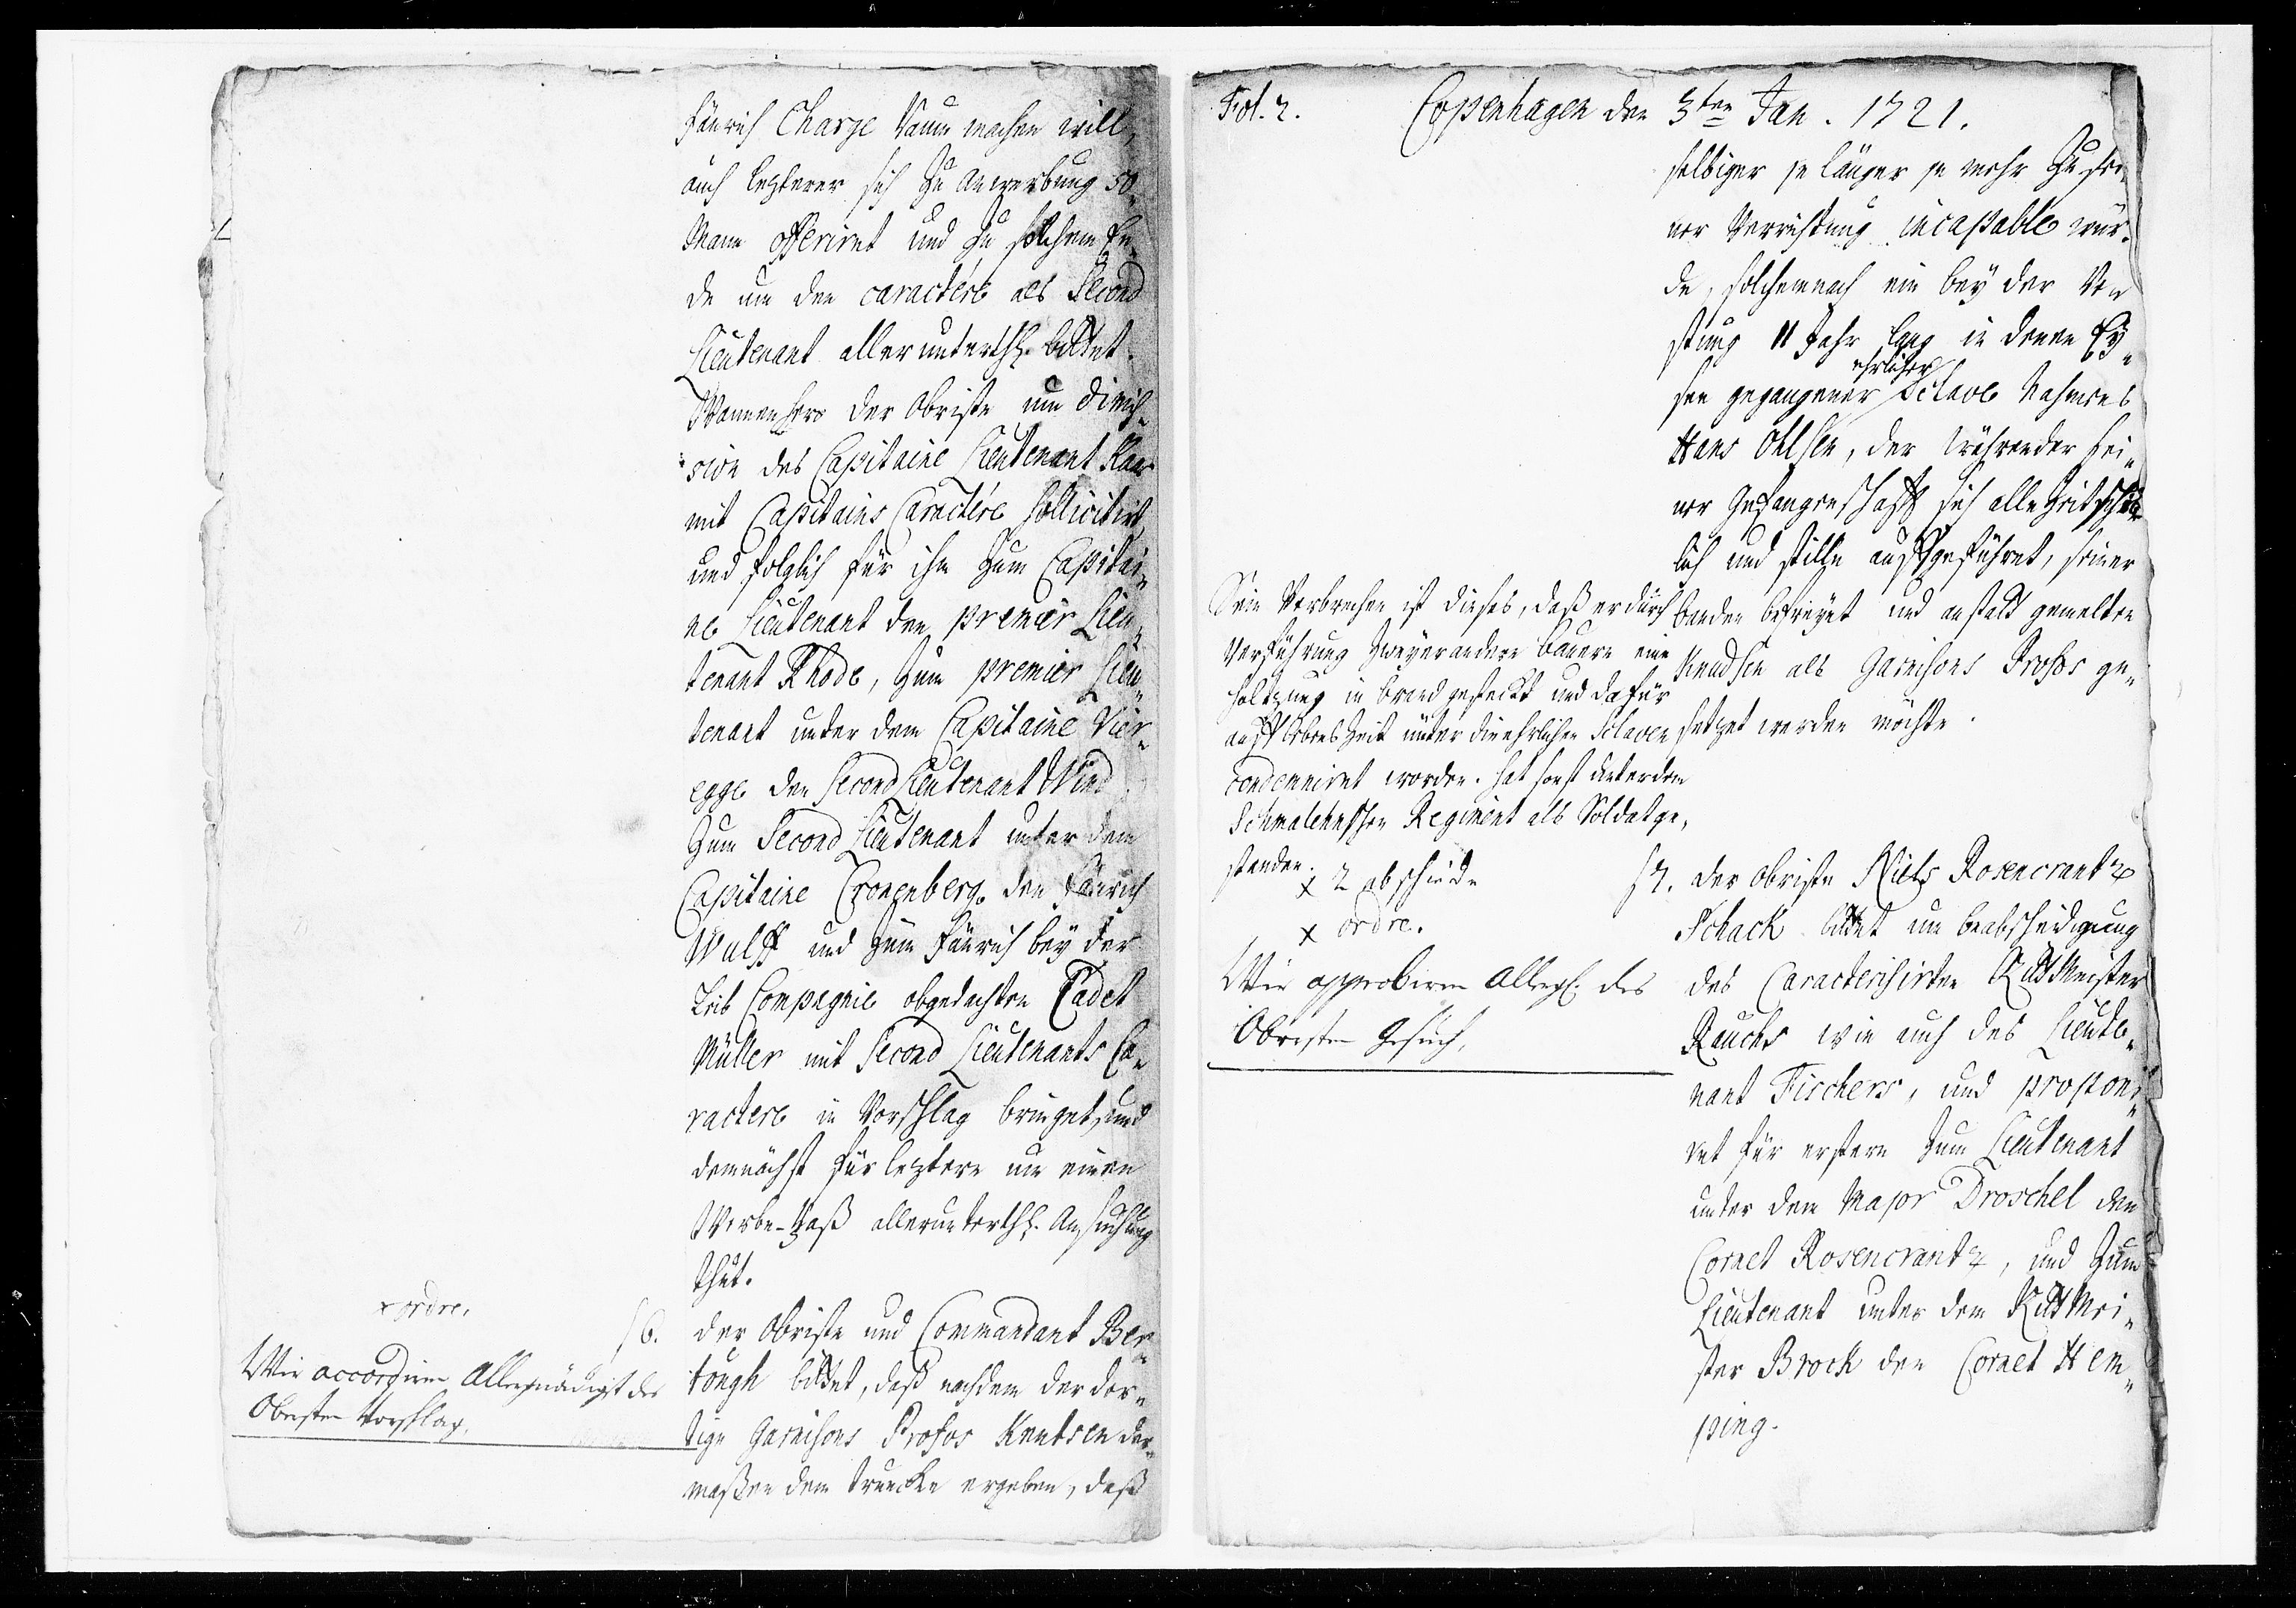 Fänrich Charge Raum machen will,
auch lezterer sich zu Anwerbung 50
Mann offeriret und zu solchem En¬
de um den caractére als Second
Lieutenant allerunterthl. bittet.
Wannenhero der Obriste um Dimis¬
sion des Capitaine Lieutenant
mit Capitains Caractére sollicitirt
und folglich für ihm zum Capitai¬
ne Lieutenant den premier Lieu¬
tenant Rhode, zum premier Lieu¬
tenant unter dem Capitaine Vier¬
egge den Second Lieutenant Wind
zum Second Lieutenant unter dem
Capitaine Cronenberg den Fänrich
Wulff und zum Fänrich bey der
Leib Compagnie obgedachten Cadet
Müller mit Second Lieutenants Ca¬
ractere in Vorschlag bringet, und
demnächst für leztern um einen
Werbe-Paß allerunterthl. Ansuchung
thut.
x ordre.
Wir accordiren Allergnädigst des
Obersten Vorschlag.
§6. Der Obriste und Commandant Ber¬
tough bittet, daß nachdem der dor¬
tige Garnisons Profos Knutsen der¬
maßen dem Truncke ergeben, daß
Fol. 2. Copenhagen den 3ten Jan. 1721.
selbiger je länger je mehr zu sei¬
ner Verrichtung incapable wür¬
de, solchemnach ein bey der Ve¬
stung 11 Jahr lang in denen Ey¬
sen gegangener ehrlicher Sclave Nahmens
Hans Ollsen, der währender sei¬
ner Gefangenschafft sich alle Zeit
lich und stille auffgeführet, seiner
Banden befreyet und anstatt gemelten
Knudsen als Garnisons Profos ge¬
setzet werden möchte.
Sein Verbrechen ist dieses, daß er durch
Verführung zweyer andern Bauern eine
Holtzung in brand gesteckt und dafür
auff Lebens Zeit unter die ehrlichen Sclaven
condemniret worden. hat sonst unter dem
Schmalehnschen Regiment als Soldat ge¬
standen.
x 2 abschiede
x ordre.
Wir approbiren Allergl. des
Obersten Gesuch.
§7. Der Obriste Niels Rosencrantz
Schack bittet um beabscheidigung
des Caracterisirten RittMeister
Rauchs wie auch des Lieute¬
nant Fischers, und proponi¬
ret für erstern zum Lieutenant
unter dem Major Droschel den
Cornet Rosencrantz, und zum
Lieutenant unter dem RittMei¬
ster Brock den Cornet Hem¬
ping.